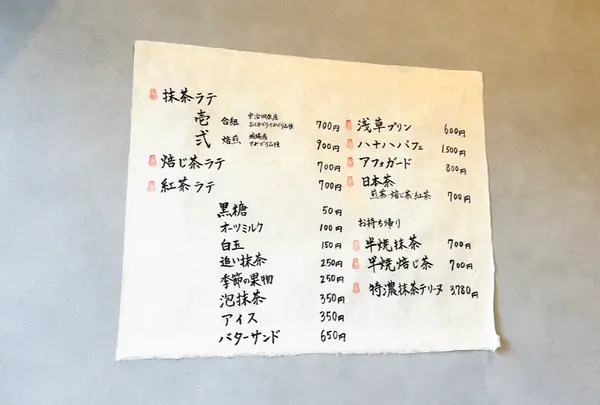 抹茶ラテ
壱 合組 宇治田原産 700円
弐 焙煎 900円
焙じ茶ラテ 700円
紅茶ラテ 700円
黒糖 50円
オーツミルク 100円
白玉 150円
追い抹茶 250円
季節の果物 250円
泡抹茶 350円
アイス 350円
バターサンド 650円
浅草プリン 600円
八十八パフェ 1.500円
アフォガード 800円
日本茶
煎茶・焙じ茶・紅茶 700円
お持ち帰り
半焼抹茶 700円
半焼焙じ茶 700円
特濃抹茶テリーヌ 3.780円